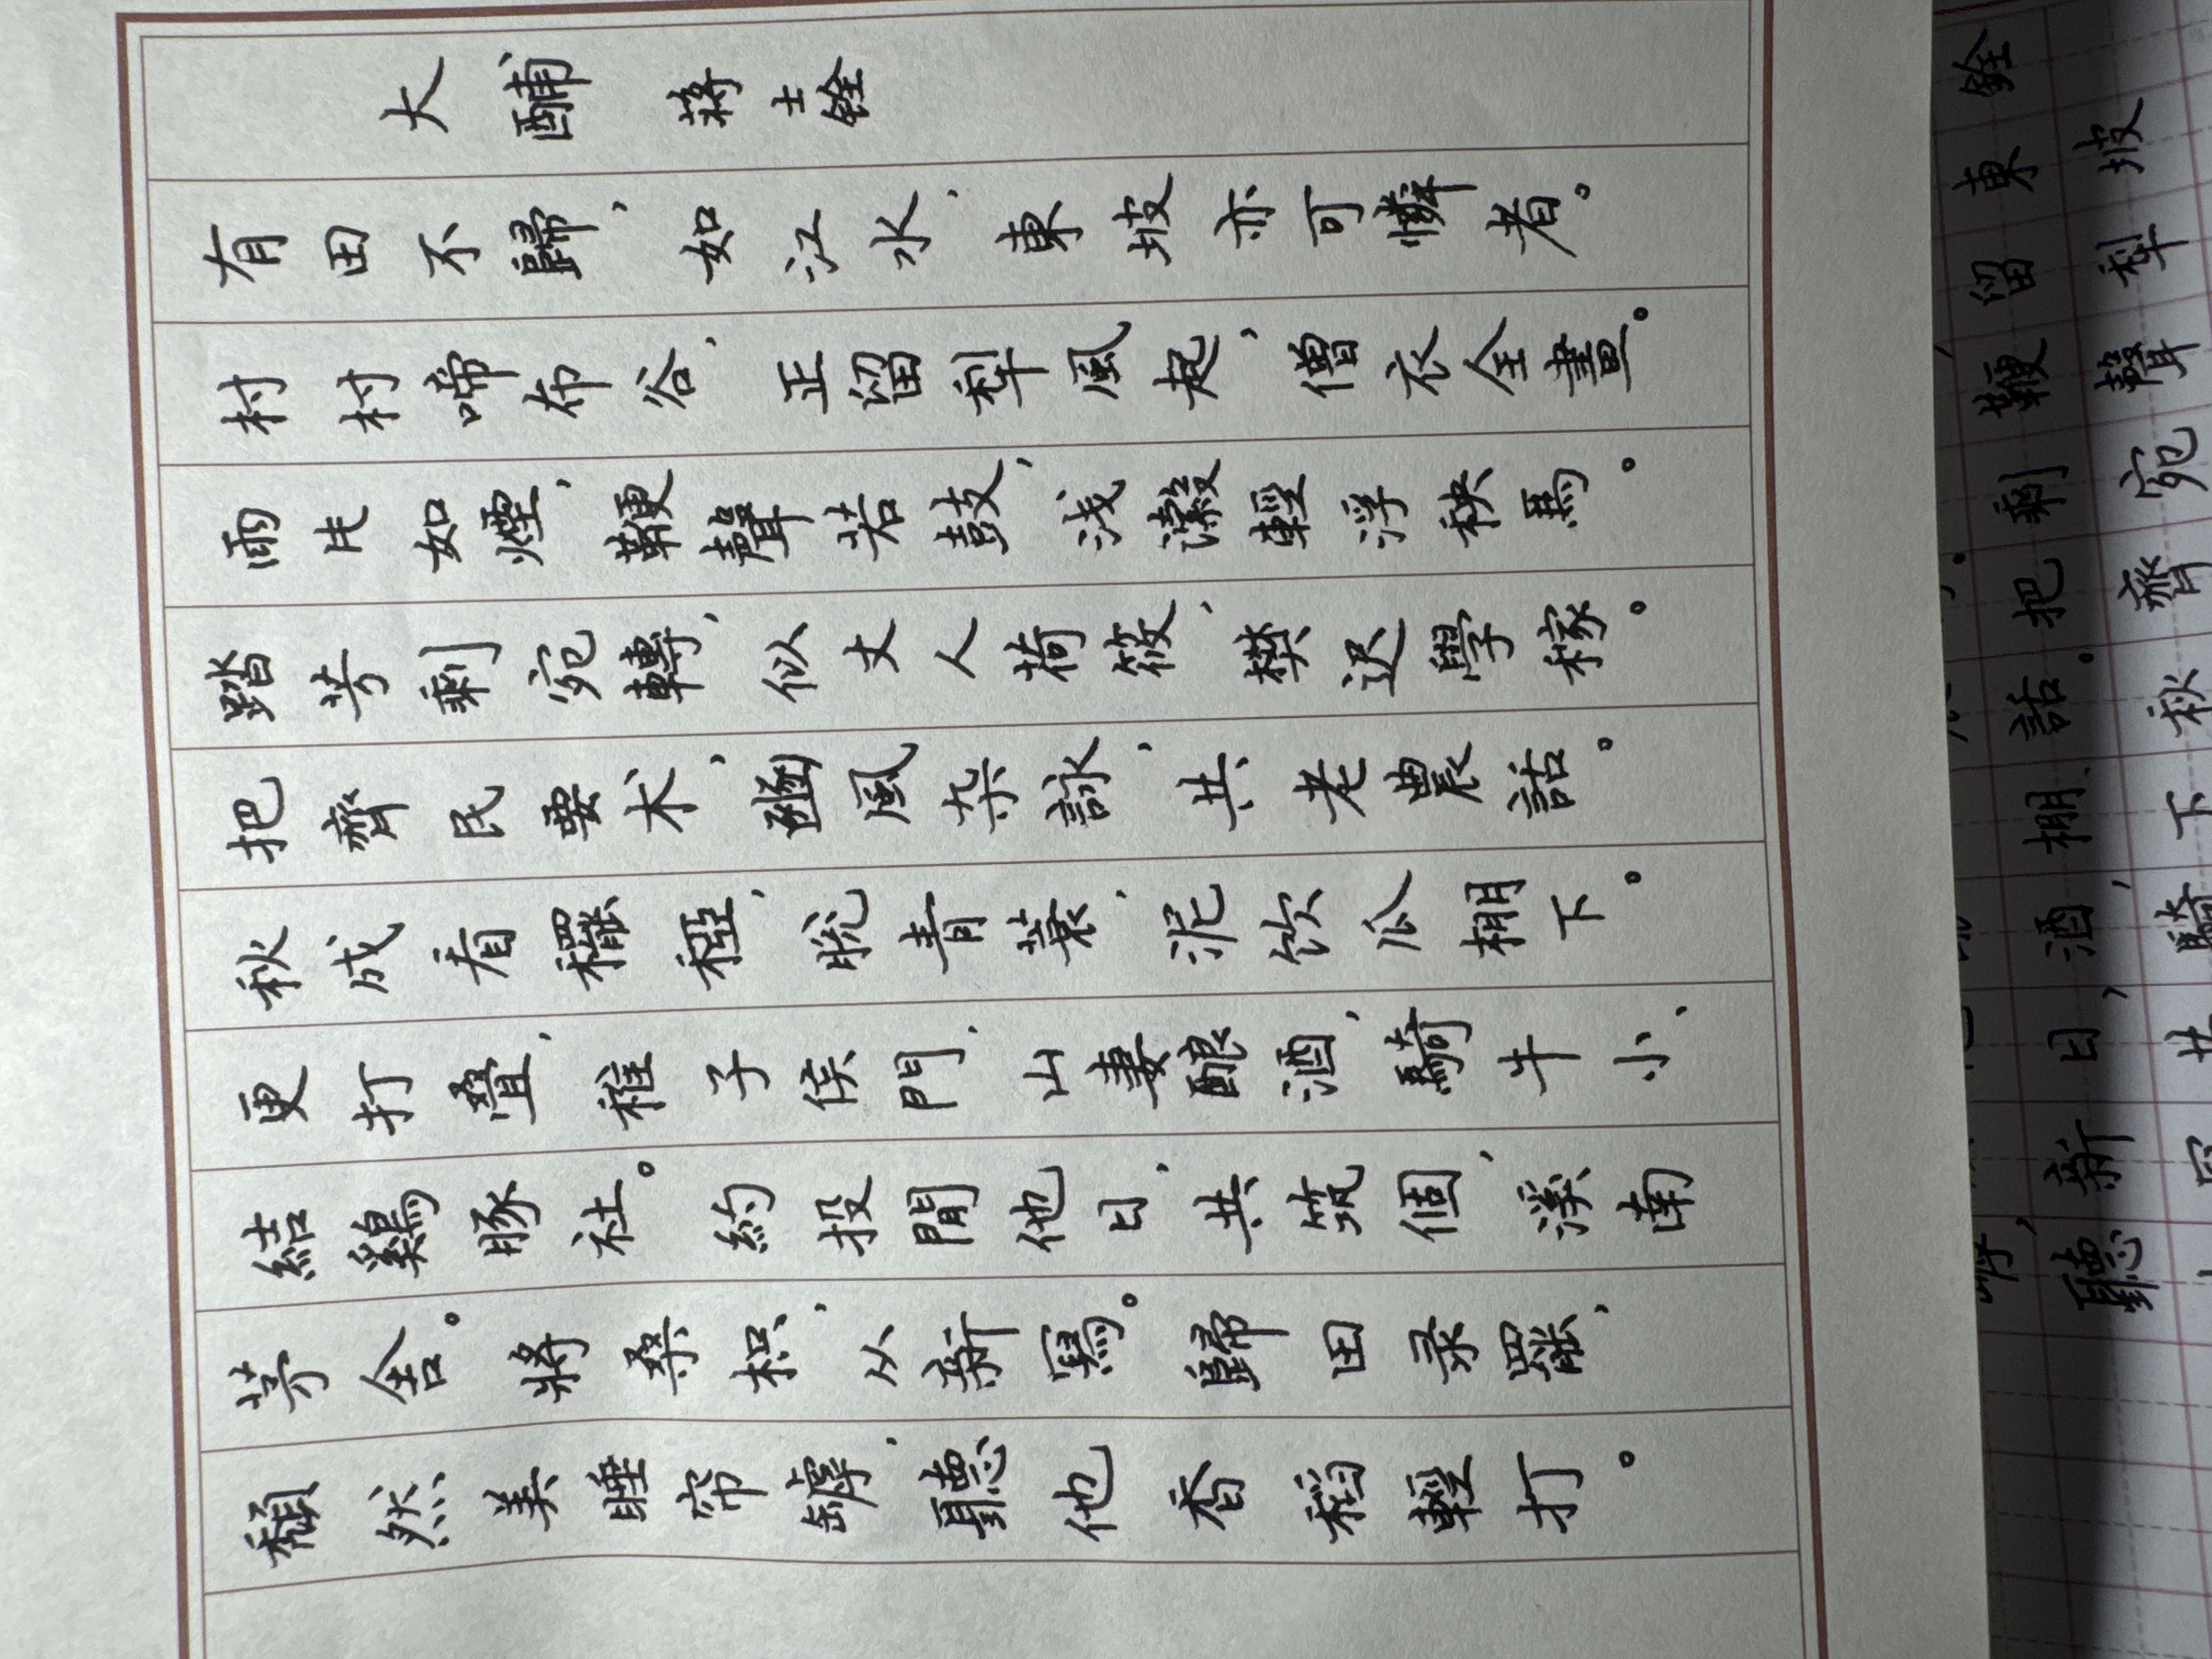 大酺 蒋士铨
有田不歸，如江水，東坡亦可憐者。
村村啼布谷，正留犁風起，僧衣全畫。
雨片如煙，鞭聲若鼓，浅瀫輕浮秧馬。
踏芳剩宛轉，似丈人荷筱，樊迟學稼。
把齊民要术，豳風杂詠，共老農話。
秋成看䆉稏，脱青蓑，泥饮瓜棚下。
更打叠，稚子侯門，山妻酿酒，騎牛小、
結鷄豚社。約投閒他日，共筑個，溪南
茅舍。將桑枳，从新寫。歸田录罷，
頹然美睡帘罅，聽他香稻輕打。
銓
東坡
留犁
鞭聲
剩宛
話。把齊
棚下秋
酒，騎
日，共
新寫
罅，聽